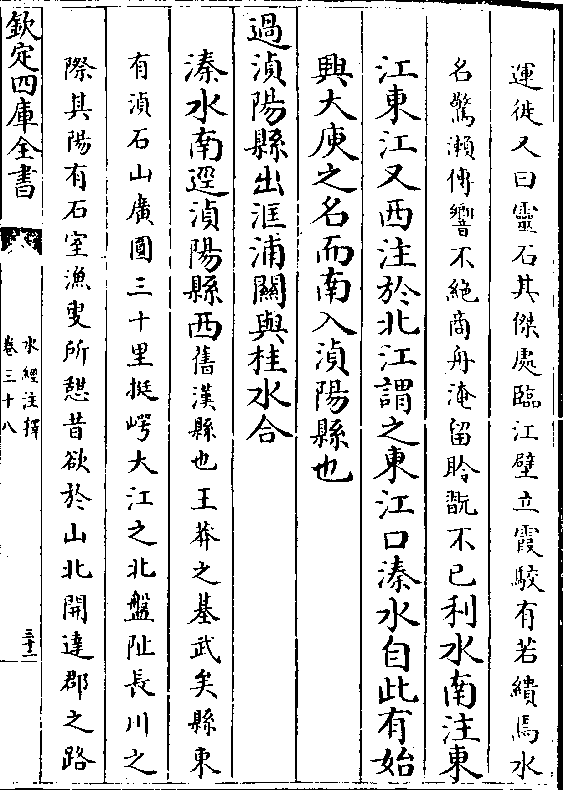 運徙又曰靈石其傑處臨江壁立霞駮有若繢焉水
名驚瀨傳響不絶商舟淹留聆翫不已利水南注東
江東江又西注於北江謂之東江口溱水自此有始
興大庾之名而南入湞陽縣也
過湞陽縣出洭浦關與桂水合
溱水南逕湞陽縣西舊漢縣也王莽之基武矣縣東
有湞石山廣圓三十里挺崿大江之北盤阯長川之
際其陽有石室漁叟所憩昔欲於山北開達郡之路
欽定四庫全書
水經注釋
卷三十八
三十二